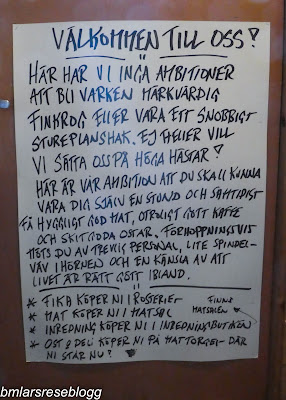 VÄLKOMMEN TILL OSS!
HÄR HAR VI INGA AMBITIONER
ATT BLI VARKEN MÄRKVÄRDIG
FINKROG ELLER VARA ETT SNOBBIGT
STUREPLANSHAK. EJ HELLER VILL
VI SÄTTA OSS PÅ HÖGA HÄSTAR!
HÄR ÄR VÅR AMBITION ATT DU SKALL KUNNA
VARA DIG SJÄLV EN STUND OCH SAMTIDIGT
FÅ HYGGLIGT GOD MAT, OTROLIGT GOTT KAFFE
OCH SKITGODA OSTAR. FÖRHOPPNINGSVIS
MÖTS DU AV TREVLIG PERSONAL, LITE SPINDEL-
VÄV I HÖRNEN OCH EN KÄNSLA AV ATT
LIVET ÄR RÄTT GÖTT IBLAND.
* FIKA KÖPER NI I ROSTERIET
* MAT KÖPER NI I MATSAL
FINNS MATSALEN
* INREDNING KÖPER NI I INREDNINGSBUTIKEN
* OST & DELI KÖPER NI PÅ MATTORGET DÄR
NI STÅR NU!
bmlarsreseblogg